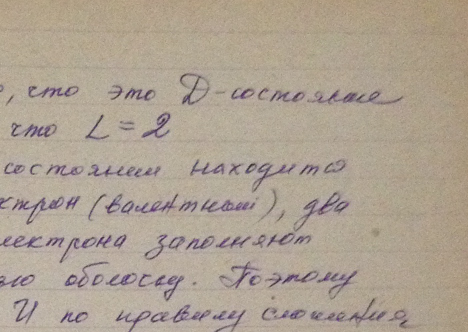 , что это D-состояние
что L = 2
состоянии находится
ктрон (валентный), два
лектрона заполняют
оболочку. Поэтому
И по правилу сложения,